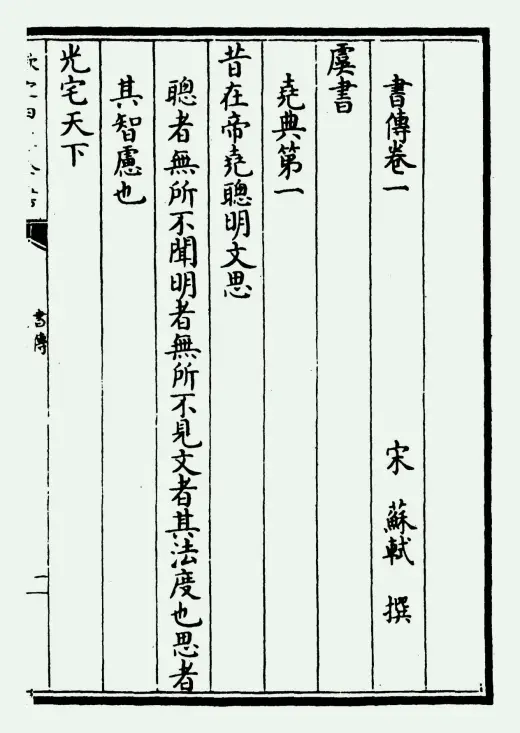 書傳卷一
宋 蘇軾 撰
虞書
堯典第一
昔在帝堯聰明文思
聰者無所不聞明者無所不見文者其法度也思者
其智慮也
光宅天下
書傳
二